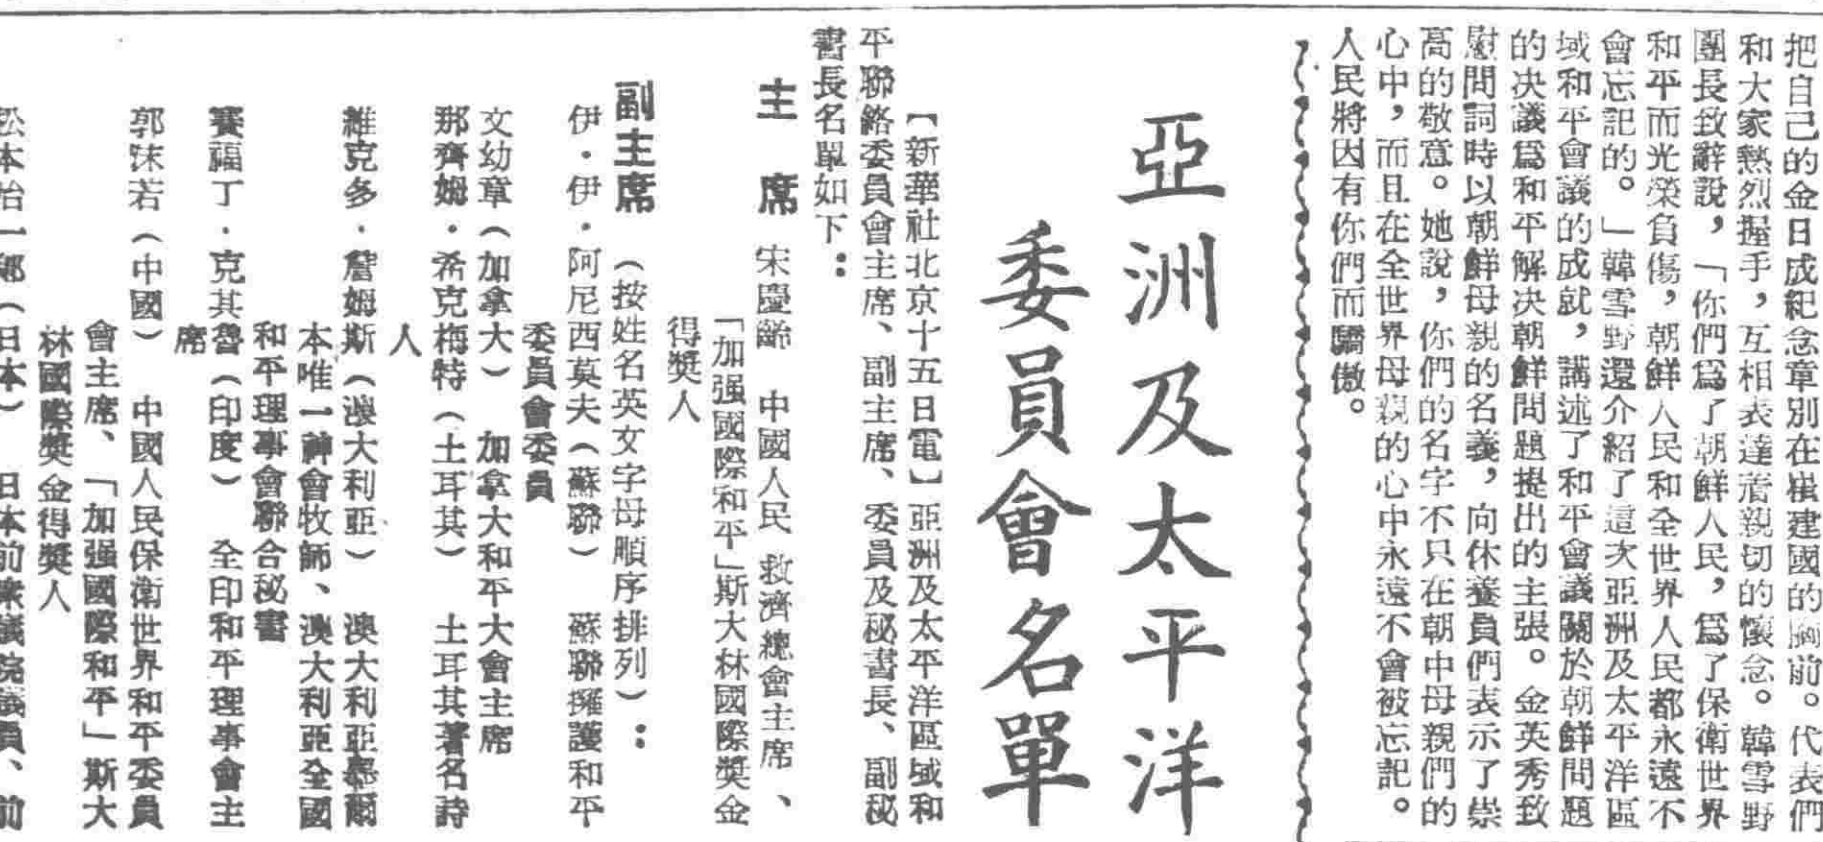 把自己的金日成紀念章別在崔建國的胸前。代表們
和大家熱烈握手，互相表達着親切的懷念。韓雪野
團長致辭說，「你們爲了朝鮮人民，爲了保衛世界
和平而光榮負傷，朝鮮人民和全世界人民都永遠不
會忘記的。」韓雪野還介紹了這次亞洲及太平洋區
域和平會議的成就，講述了和平會議關於朝鮮問題
的决議爲和平解决朝鮮問題提出的主張。金英秀致
慰問詞時以朝鮮母親的名義，向休養員們表示了崇
高的敬意。她說，你們的名字不只在朝中母親們的
心中，而且在全世界母親的心中永遠不會被忘記。
人民將因有你們而驕傲。
亞洲及太平洋
委員會名單
【新華社北京十五日電】亞洲及太平洋區域和
平聯絡委員會主席、副主席、委員及秘書長、副秘
書長名單如下：
主　席　宋慶齡　中國人民救濟總會主席、
「加强國際和平」斯大林國際獎金
得獎人
副主席　（按姓名英文字母順序排列）：
伊·伊·阿尼西莫夫（蘇聯）　蘇聯擁護和平
委員會委員
文幼章（加拿大）　加拿大和平大會主席
那齊姆·希克梅特（土耳其）　土耳其著名詩
人
維克多·詹姆斯（澳大利亞）　澳大利亞墨爾
本唯一神會牧師、澳大利亞全國
和平理事會聯合秘書
賽福丁·克其魯（印度）　全印和平理事會主
席
郭沫若（中國）　中國人民保衛世界和平委員
會主席、「加强國際和平」斯大
林國際獎金得獎人
松本治一郎（日本）　日本前衆議院議員、前